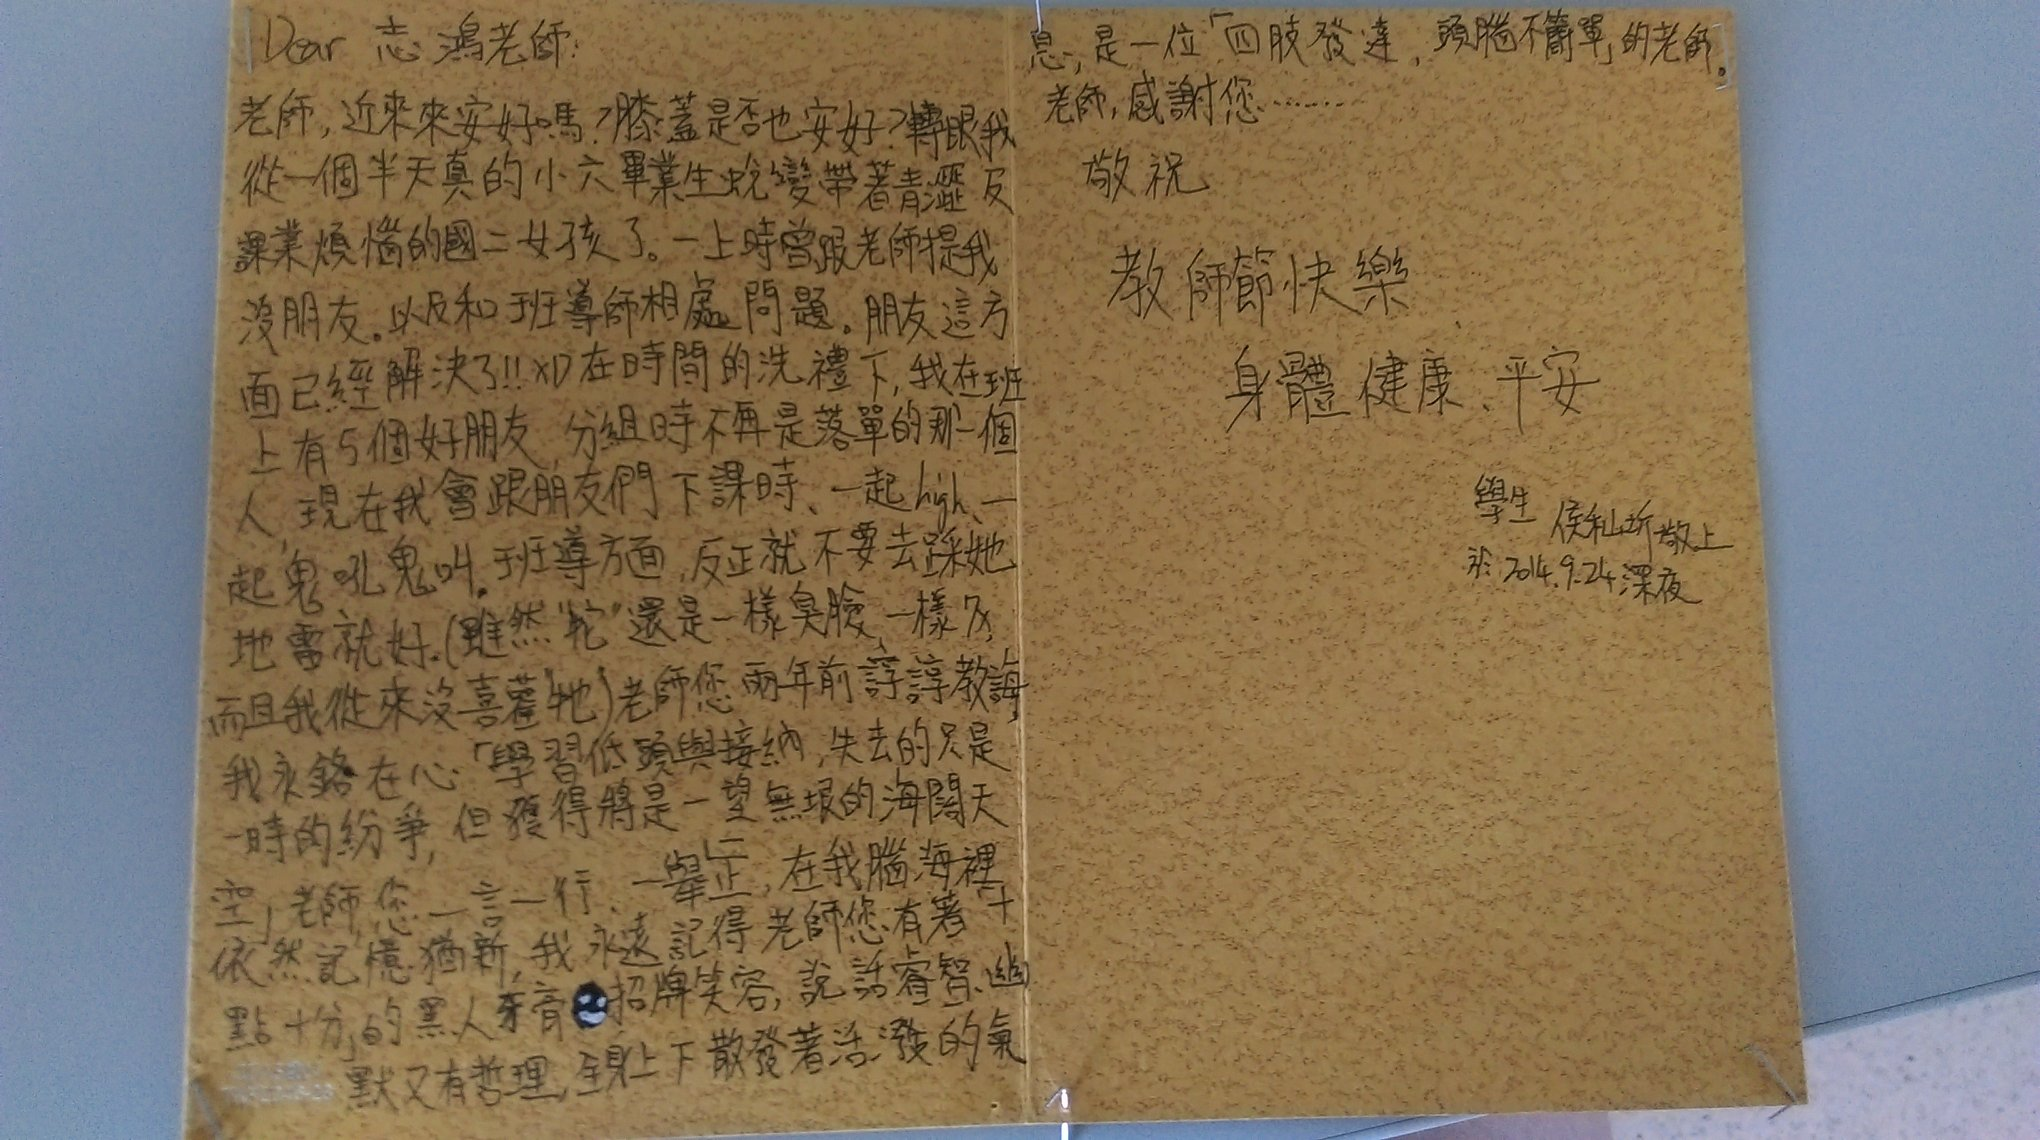 Dear 志鴻老師:
老師,近來來安好嗎?膝蓋是否也安好?轉眼我
從一個半天真的小六畢業生蛻變帶著青澀反
課業煩惱的國二女孩了。一上時曾跟老師提我
沒朋友。以及和班導師相處問題。朋友這方
面已經解決了!!XD在時間的洗禮下,我在班
上有5個好朋友,分組時不再是落單的那一個
人,現在我會跟朋友們下課時、一起high、一
起鬼吼鬼叫。班導方面,反正就不要去踩她
地雷就好.(雖然"牠"還是一樣臭臉,一樣
而且我從來沒喜著"牠")老師您兩年前諄諄教誨,
我永銘在心「學習低頭與接納,失去的只是
一時的紛爭,但獲得將是一望無垠的海闊天
空」老師,您一言一行、一舉一止,在我腦海裡
依然記憶猶新,我永遠記得老師您有著「十
點十分」的黑人牙膏招牌笑容,說話睿智、幽
默又有哲理,全身上下散發著活潑的氣
息,是一位「四肢發達,頭腦不簡單」的老師。
老師,感謝您……
敬祝
教師節快樂
身體健康、平安
學生 侯 敬上
於2014.9.24深夜